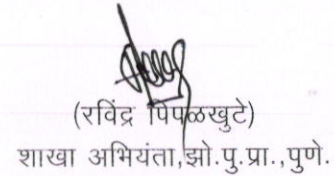 (रविंद्र पिपळखुटे)
शाखा अभियंता,झो.पु.प्रा.,पुणे.